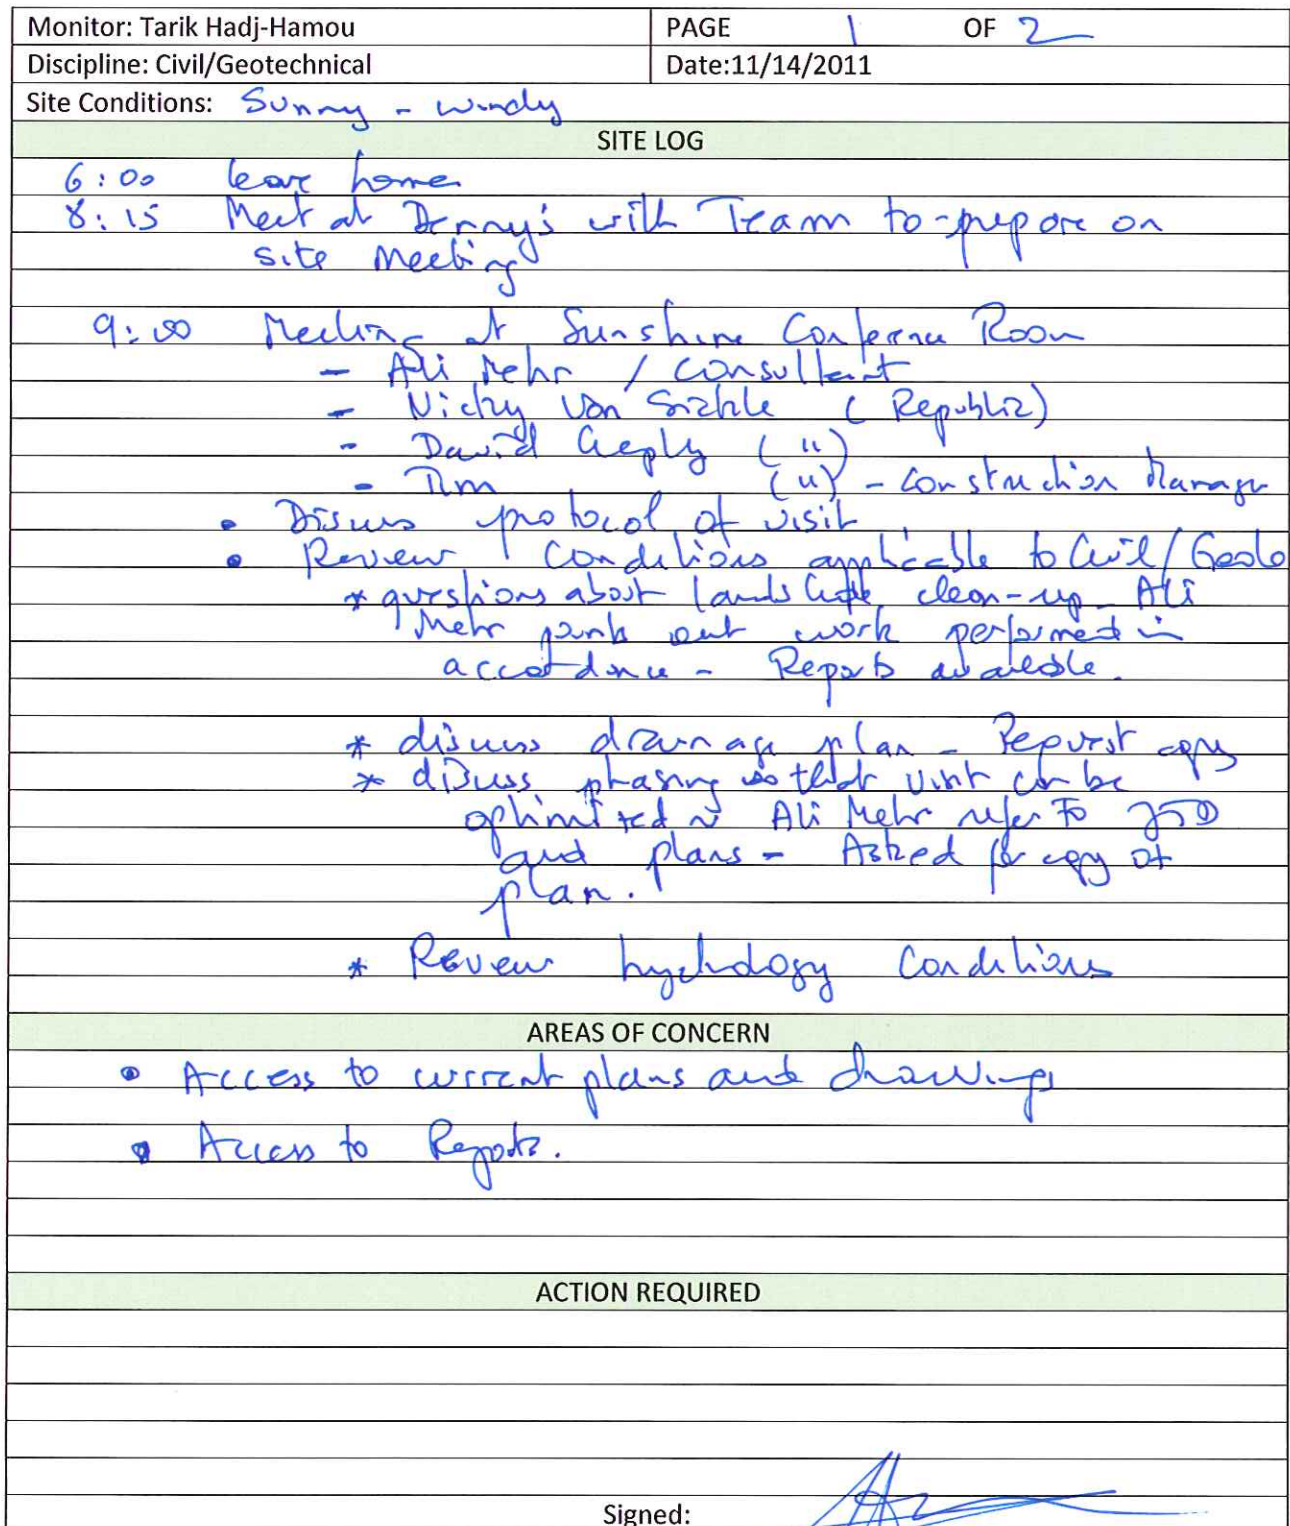 Monitor: Tarik Hadj-Hamou PAGE 1 OF 2
Discipline: Civil/Geotechnical Date:11/14/2011
Site Conditions: Sunny - windy
SITE LOG
6:00 leave home
8:15 Meet at Denny's with Team to prepare on
site meeting
9:00 Meeting at Sunshine Conference Room
- Ali Mehr / consultant
- Nicky Van (Republic)
- David (")
- Tim (") - Construction Manager
• Discuss protocol of visit
• Review conditions applicable to Civil/Geote
* questions about clean-up - Ali
Mehr out work performed in
accordance - Reports available.
* discuss drainage plan - Request copy
* discuss phasing so that visit can be
optimized Ali Mehr refer to JTD
and plans - Asked for copy of
plan.
* Review hydrology Conditions
AREAS OF CONCERN
• Access to current plans and drawings
• Access to Reports.
ACTION REQUIRED
Signed: